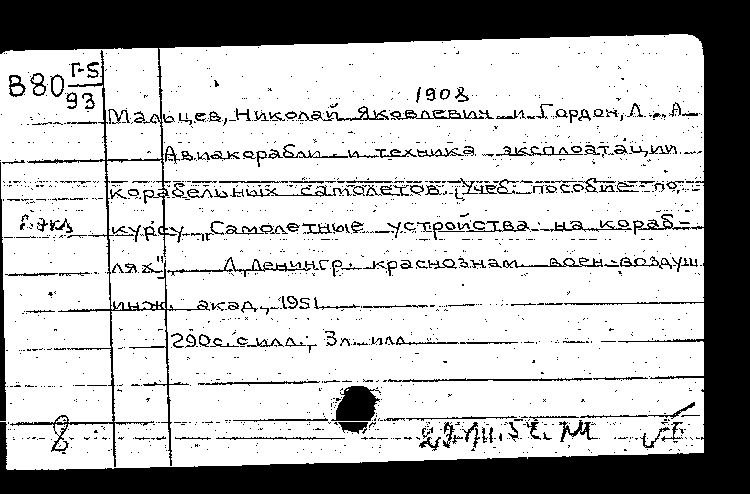 В80 Г-5
93
1908
Мальцев, Николай Яковлевич и Гордон, Л. А.
Авиакорабли и техника эксплоатации
корабельных самолетов. [Учеб. пособие по
2 экз
курсу „Самолетные устройства на кораб-
лях"]. Л., Ленингр. краснознам. воен-воздуш
инж. акад., 1951.
290с. с илл.; 3л. илл.
2